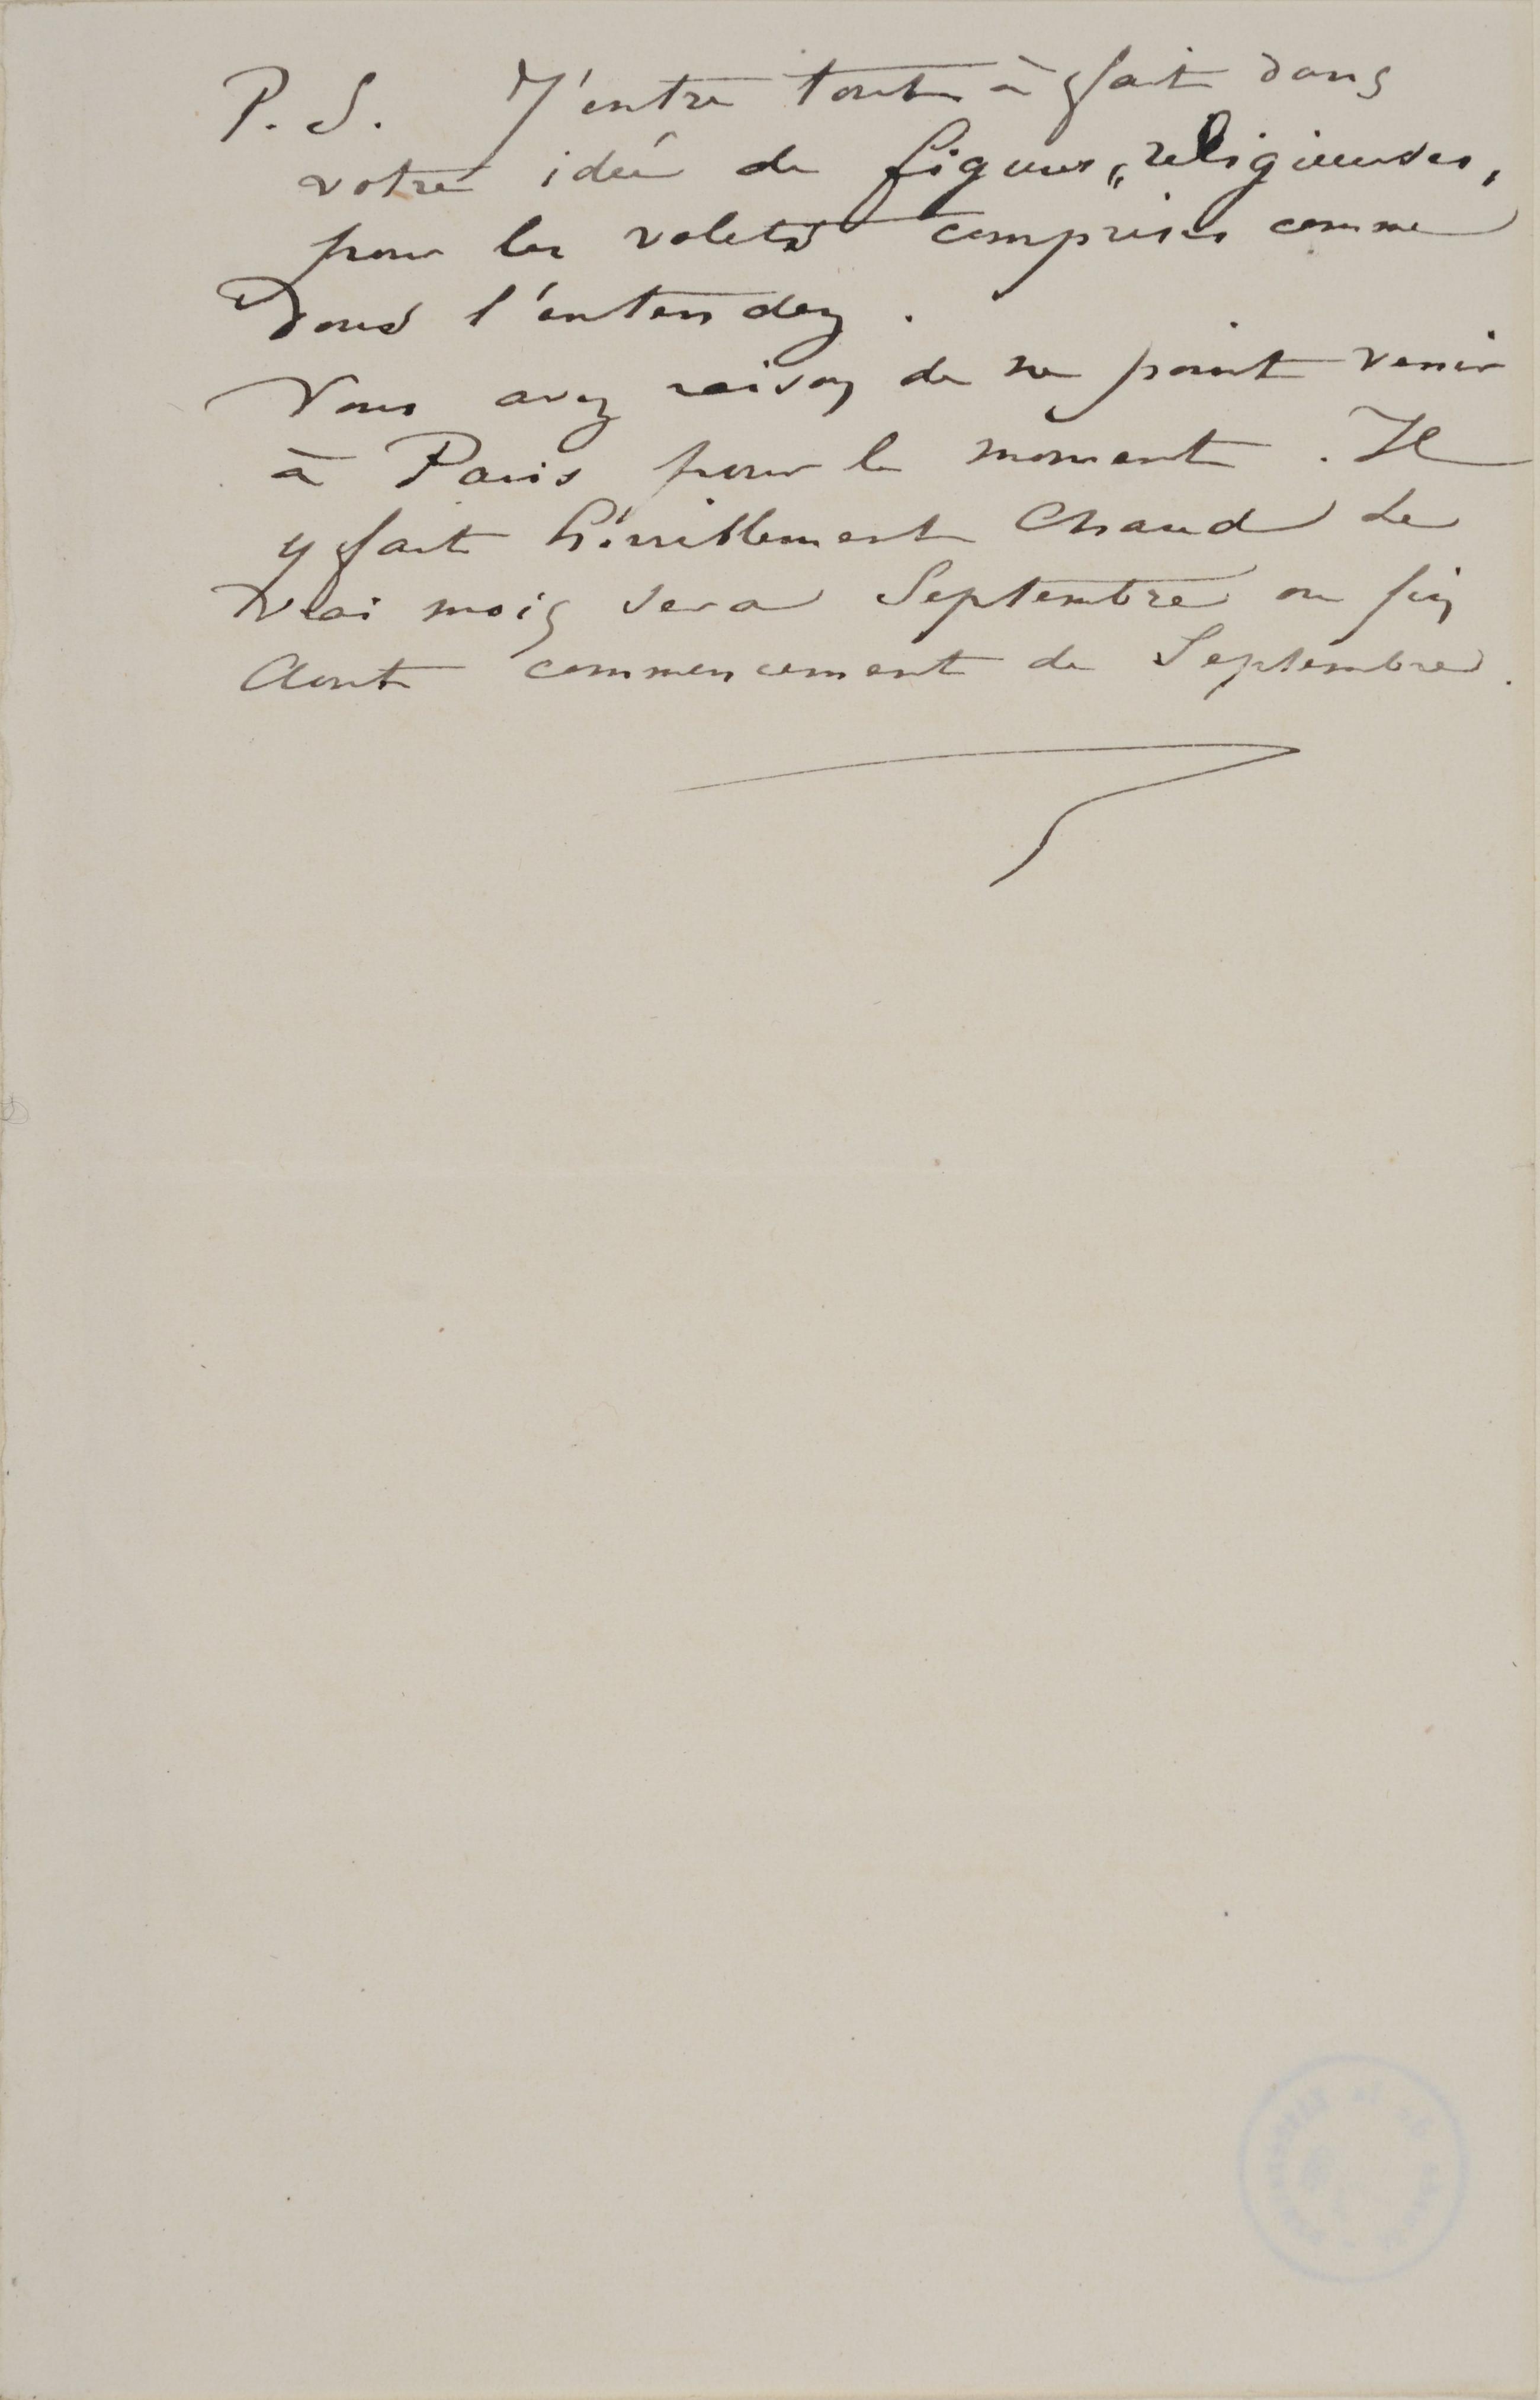 P. S. J'entre tout à fait dans
votre idée de figures „religieuses„
pour les volets comprises comme
vous l'entendez.
Vous avez raison de ne point venir
à Paris pour le moment. Il
y fait horriblement chaud le
vrai mois sera Septembre ou fin
Aout commencement de Septembre.